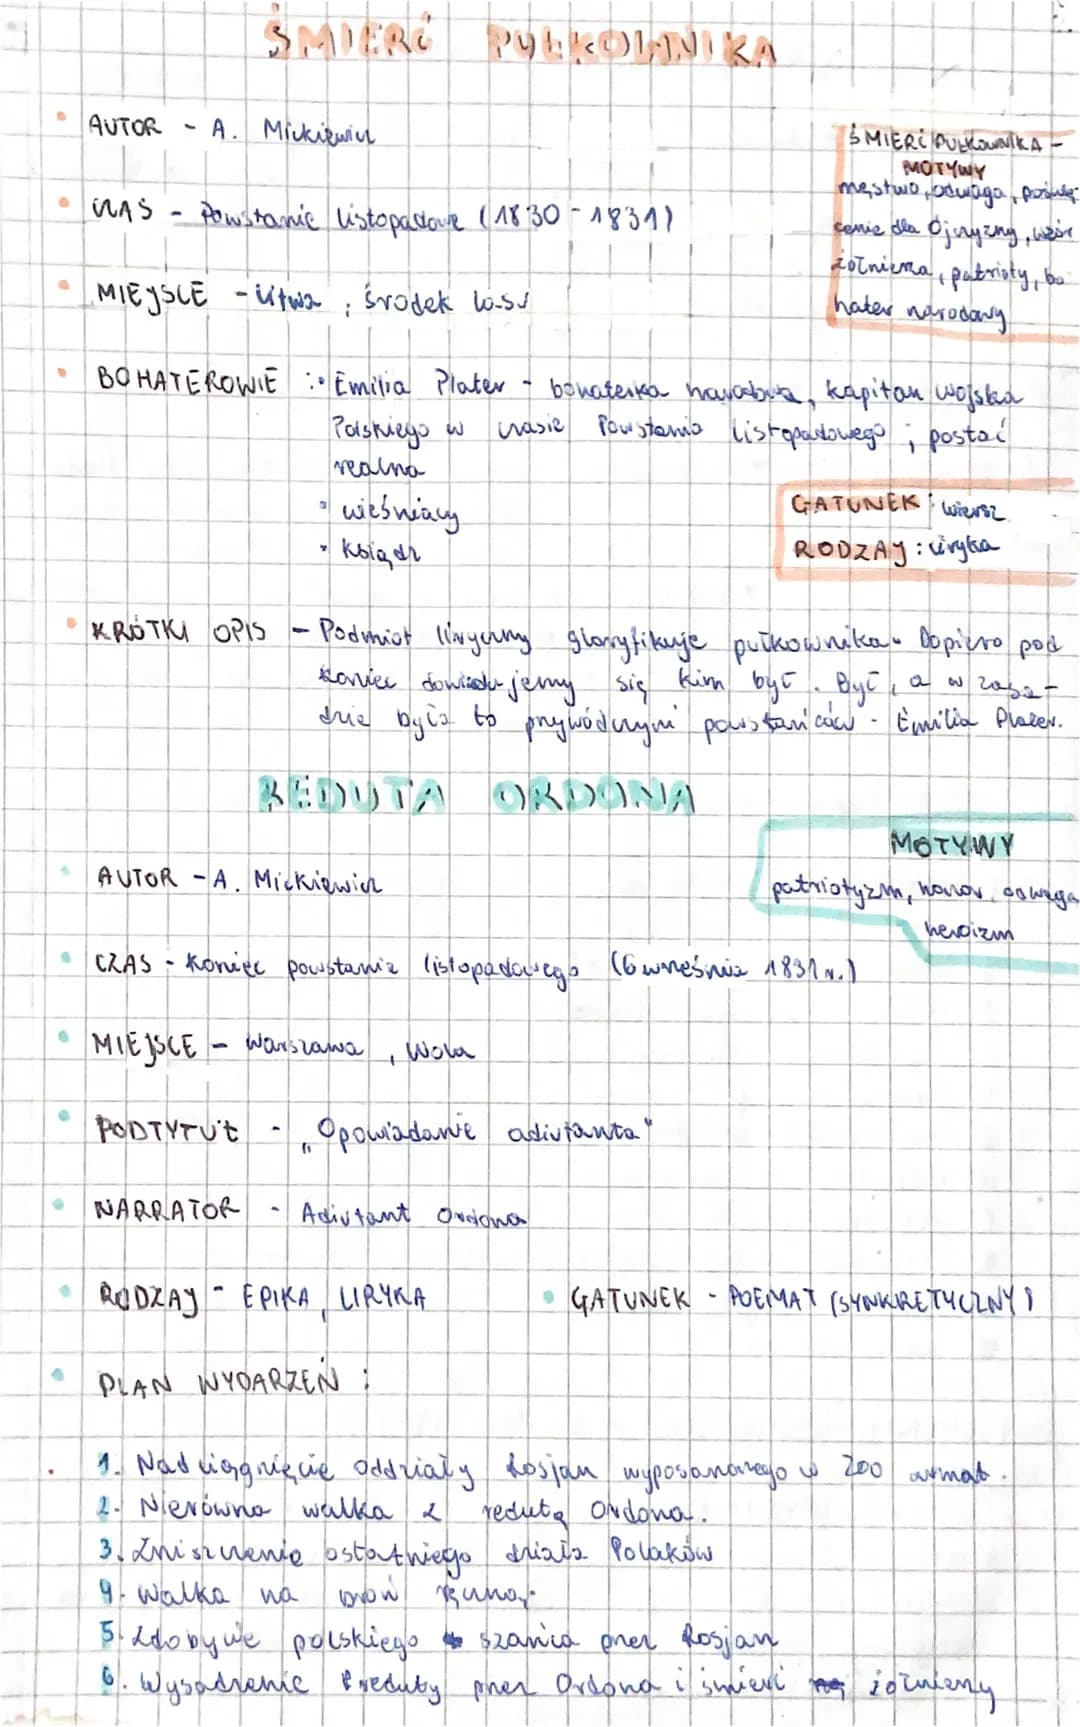 ŚMIERĆ PUŁKOWNIKA
AUTOR - A. Mickiewicz
ŚMIERĆ PUŁKOWNIKA -
MOTYWY
męstwo, odwaga, poświę
cenie dla Ojczyzny, wzór
żołnierza, patrioty, bo
hater narodowy
CZAS - Powstanie listopadowe (1830 - 1831)
MIEJSCE - Litwa, środek lasu
BOHATEROWIE : • Emilia Plater - bohaterka narodowa, kapitan wojska
Polskiego w czasie Powstania Listopadowego ; postać
realna
• wieśniacy
• Ksiądz
GATUNEK : wiersz
RODZAJ : liryka
KRÓTKI OPIS - Podmiot liryczny gloryfikuje pułkownika. Dopiero pod
koniec dowiadujemy się kim był. Był, a w zasa-
dzie była to przywódczyni powstańców - Emilia Plater.
REDUTA ORDONA
MOTYWY
patriotyzm, honor, odwaga
heroizm
AUTOR - A. Mickiewicz
CZAS - Koniec powstania listopadowego (6 września 1831 r.)
MIEJSCE - Warszawa, Wola
PODTYTUŁ - „Opowiadanie adiutanta"
NARRATOR - Adiutant Ordona
RODZAJ - EPIKA, LIRYKA
GATUNEK - POEMAT (SYNKRETYCZNY)
PLAN WYDARZEŃ :
1. Nadciągnięcie oddziały Rosjan wyposażonego w 200 armat.
2. Nierówna walka z redutą Ordona.
3. Zniszczenie ostatniego działa Polaków
4. Walka na broń ręczną.
5. Zdobycie polskiego szańca przez Rosjan
6. Wysadzenie reduty przez Ordona i śmierć żołnierzy